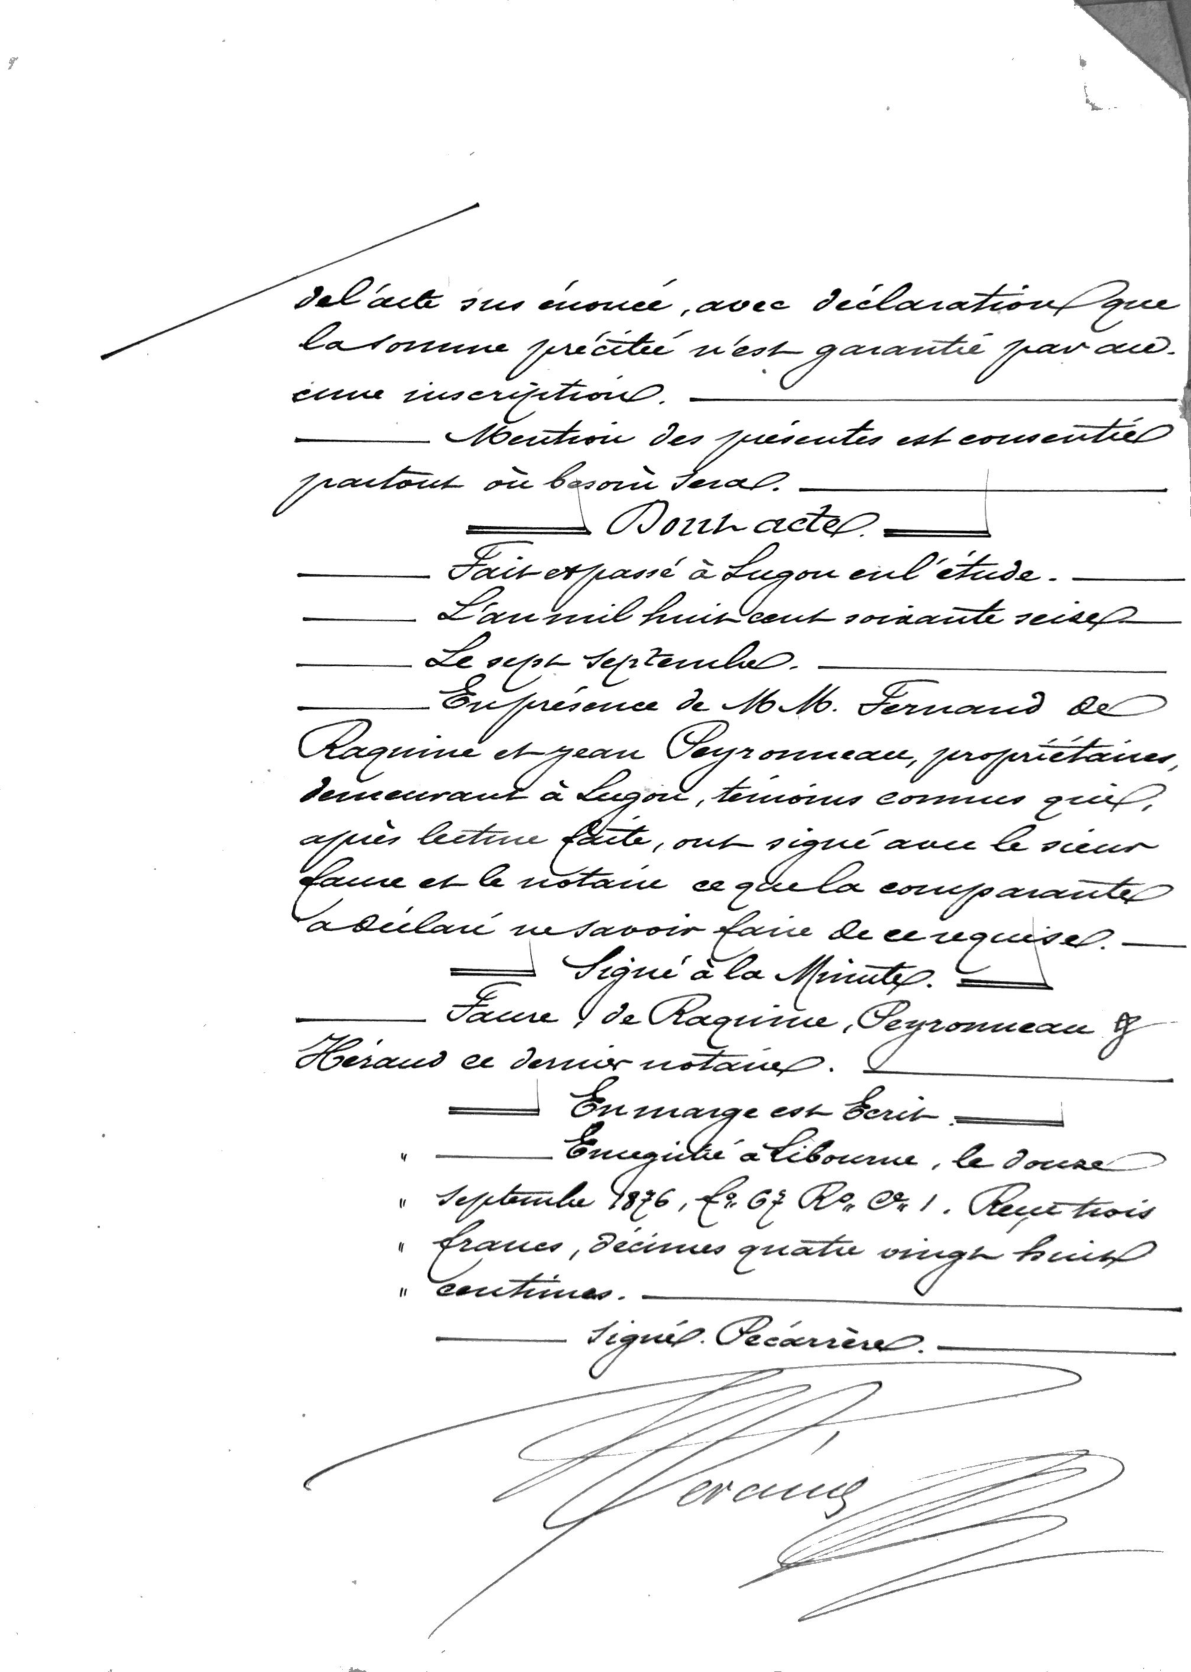 de l'acte sus énoncé, avec déclaration que
la somme précitée n'est garantie par au-
cune inscription.
Mention des présentes est consentie
partout où besoin sera.
Dont acte.
Fait et passé à Lugon en l'étude.
L'an mil huit cent soixante seise
Le sept septembre.
En présence de M M. Fernand de
Raquine et jean Peyronneau, propriétaires,
demeurant à Lugon, témoins connus qui,
après lecture faite, ont signé avec le sieur
faure et le notaire ce que la comparante
a déclaré ne savoir faire de ce requise.
Signé à la Minute.
Faure, de Raquine, Peyronneau &
Héraud ce dernier notaire.
En marge est Ecrit.
" Enregistré à Libourne, le douze
" septembre 1876, fo 67 Ro Ce 1. Reçu trois
" francs, décimes quatre vingt huit
" centimes.
Signé. Pécarrère.
Héraud